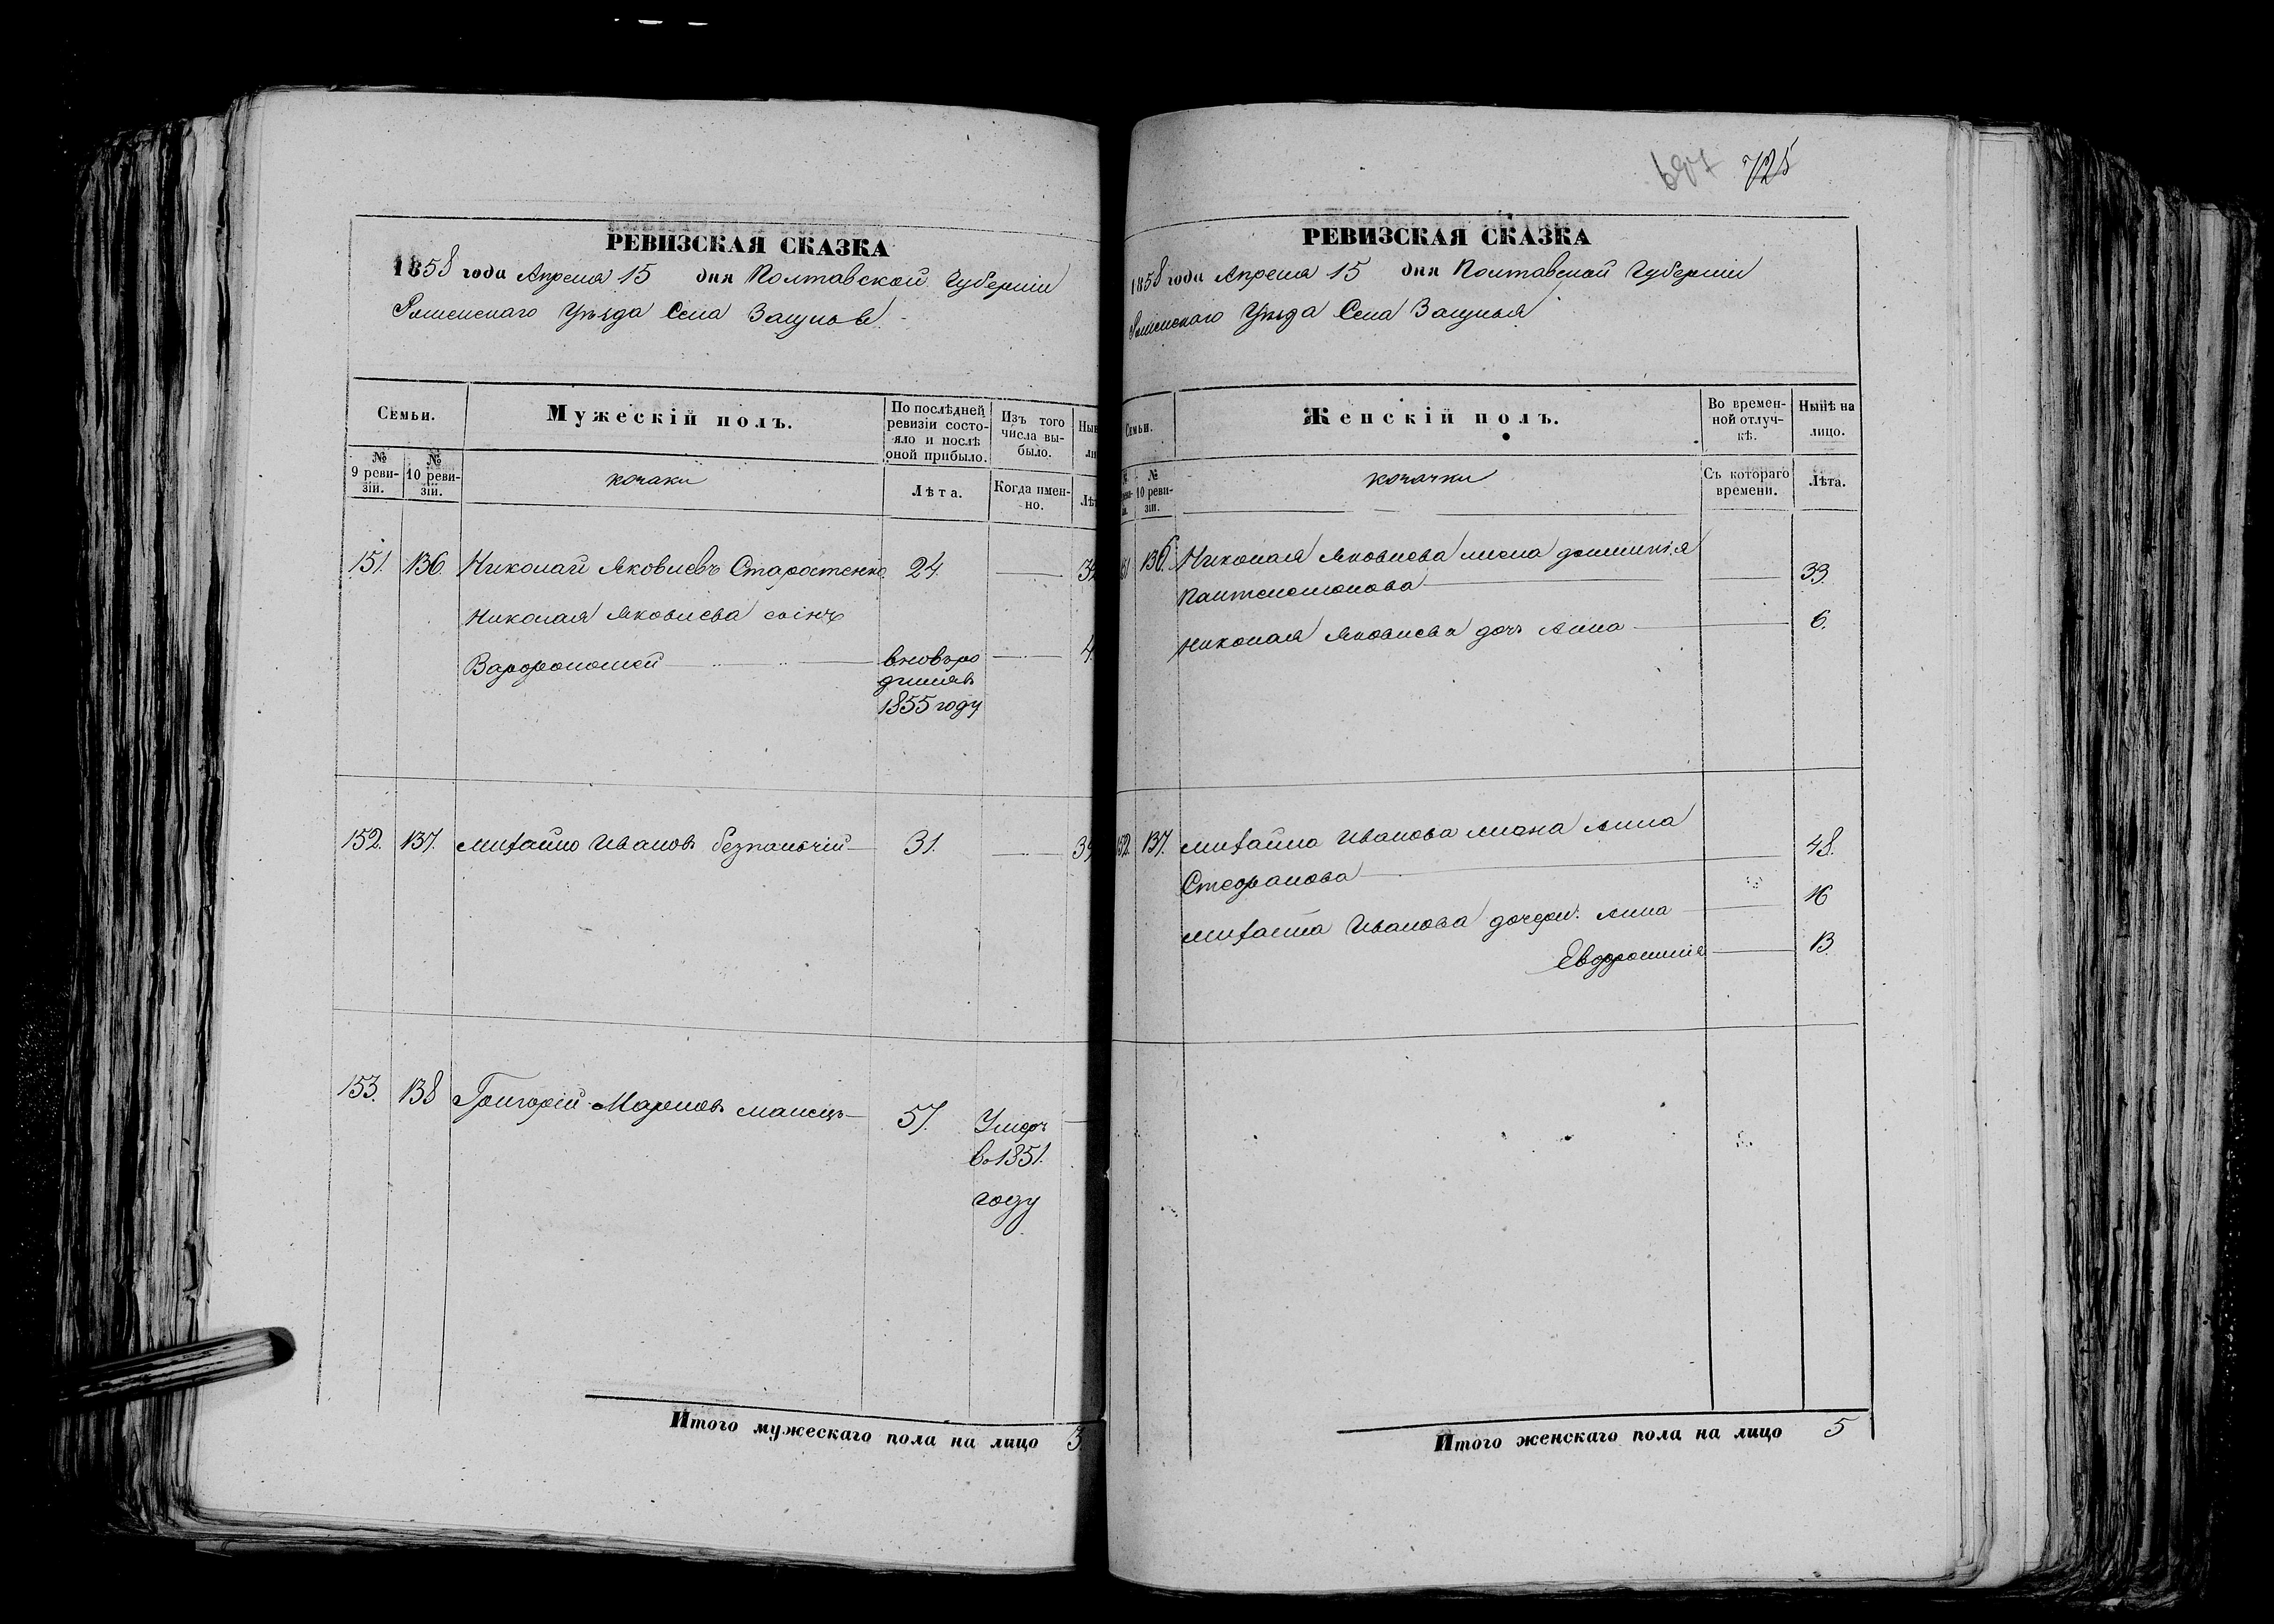 697 725
РЕВИЗСКАЯ СКАЗКА
1858 года Апреля 15 дня Полтавской Губерніи
Роменскаго Уѣзда Села Защупье
Семьи.
№ 9 реви-зіи.
№ 10 реви-зіи.
Мужескій полъ.
козаки
По послѣдней ревизіи состо-яло и послѣ оной прибыло.
Лѣта.
Изъ того числа вы-было.
Когда имен-но.
151. 136. Николай Яковлевъ Старостенко 24.
Николая Яковлева сынъ
Варфоломей вновь ро
дился
1855 году
4
152. 137. Михайло Ивановъ Безпалчій 31.
153. 138 Григорій Марковъ 57. Умеръ
въ 1851.
году
Итого мужескаго пола на лицо 3
РЕВИЗСКАЯ СКАЗКА
1858 года Апреля 15 дня Полтавской Губерніи
Роменскаго Уѣзда Села Защупья
Семьи.
№ 10 реви-зіи.
Женскій полъ.
козачки
Во времен-ной отлуч-кѣ.
Съ котораго времени.
Нынѣ на лицо.
Лѣта.
136. Николая Яковлева жена Домникія
Пантелемонова 33.
Николая Яковлева дочь Анна 6.
152. 137. Михайла Иванова жена Анна
Стефанова 48.
Михайла Иванова дочери: Анна 16
Евфросинія 13.
Итого женскаго пола на лицо 5